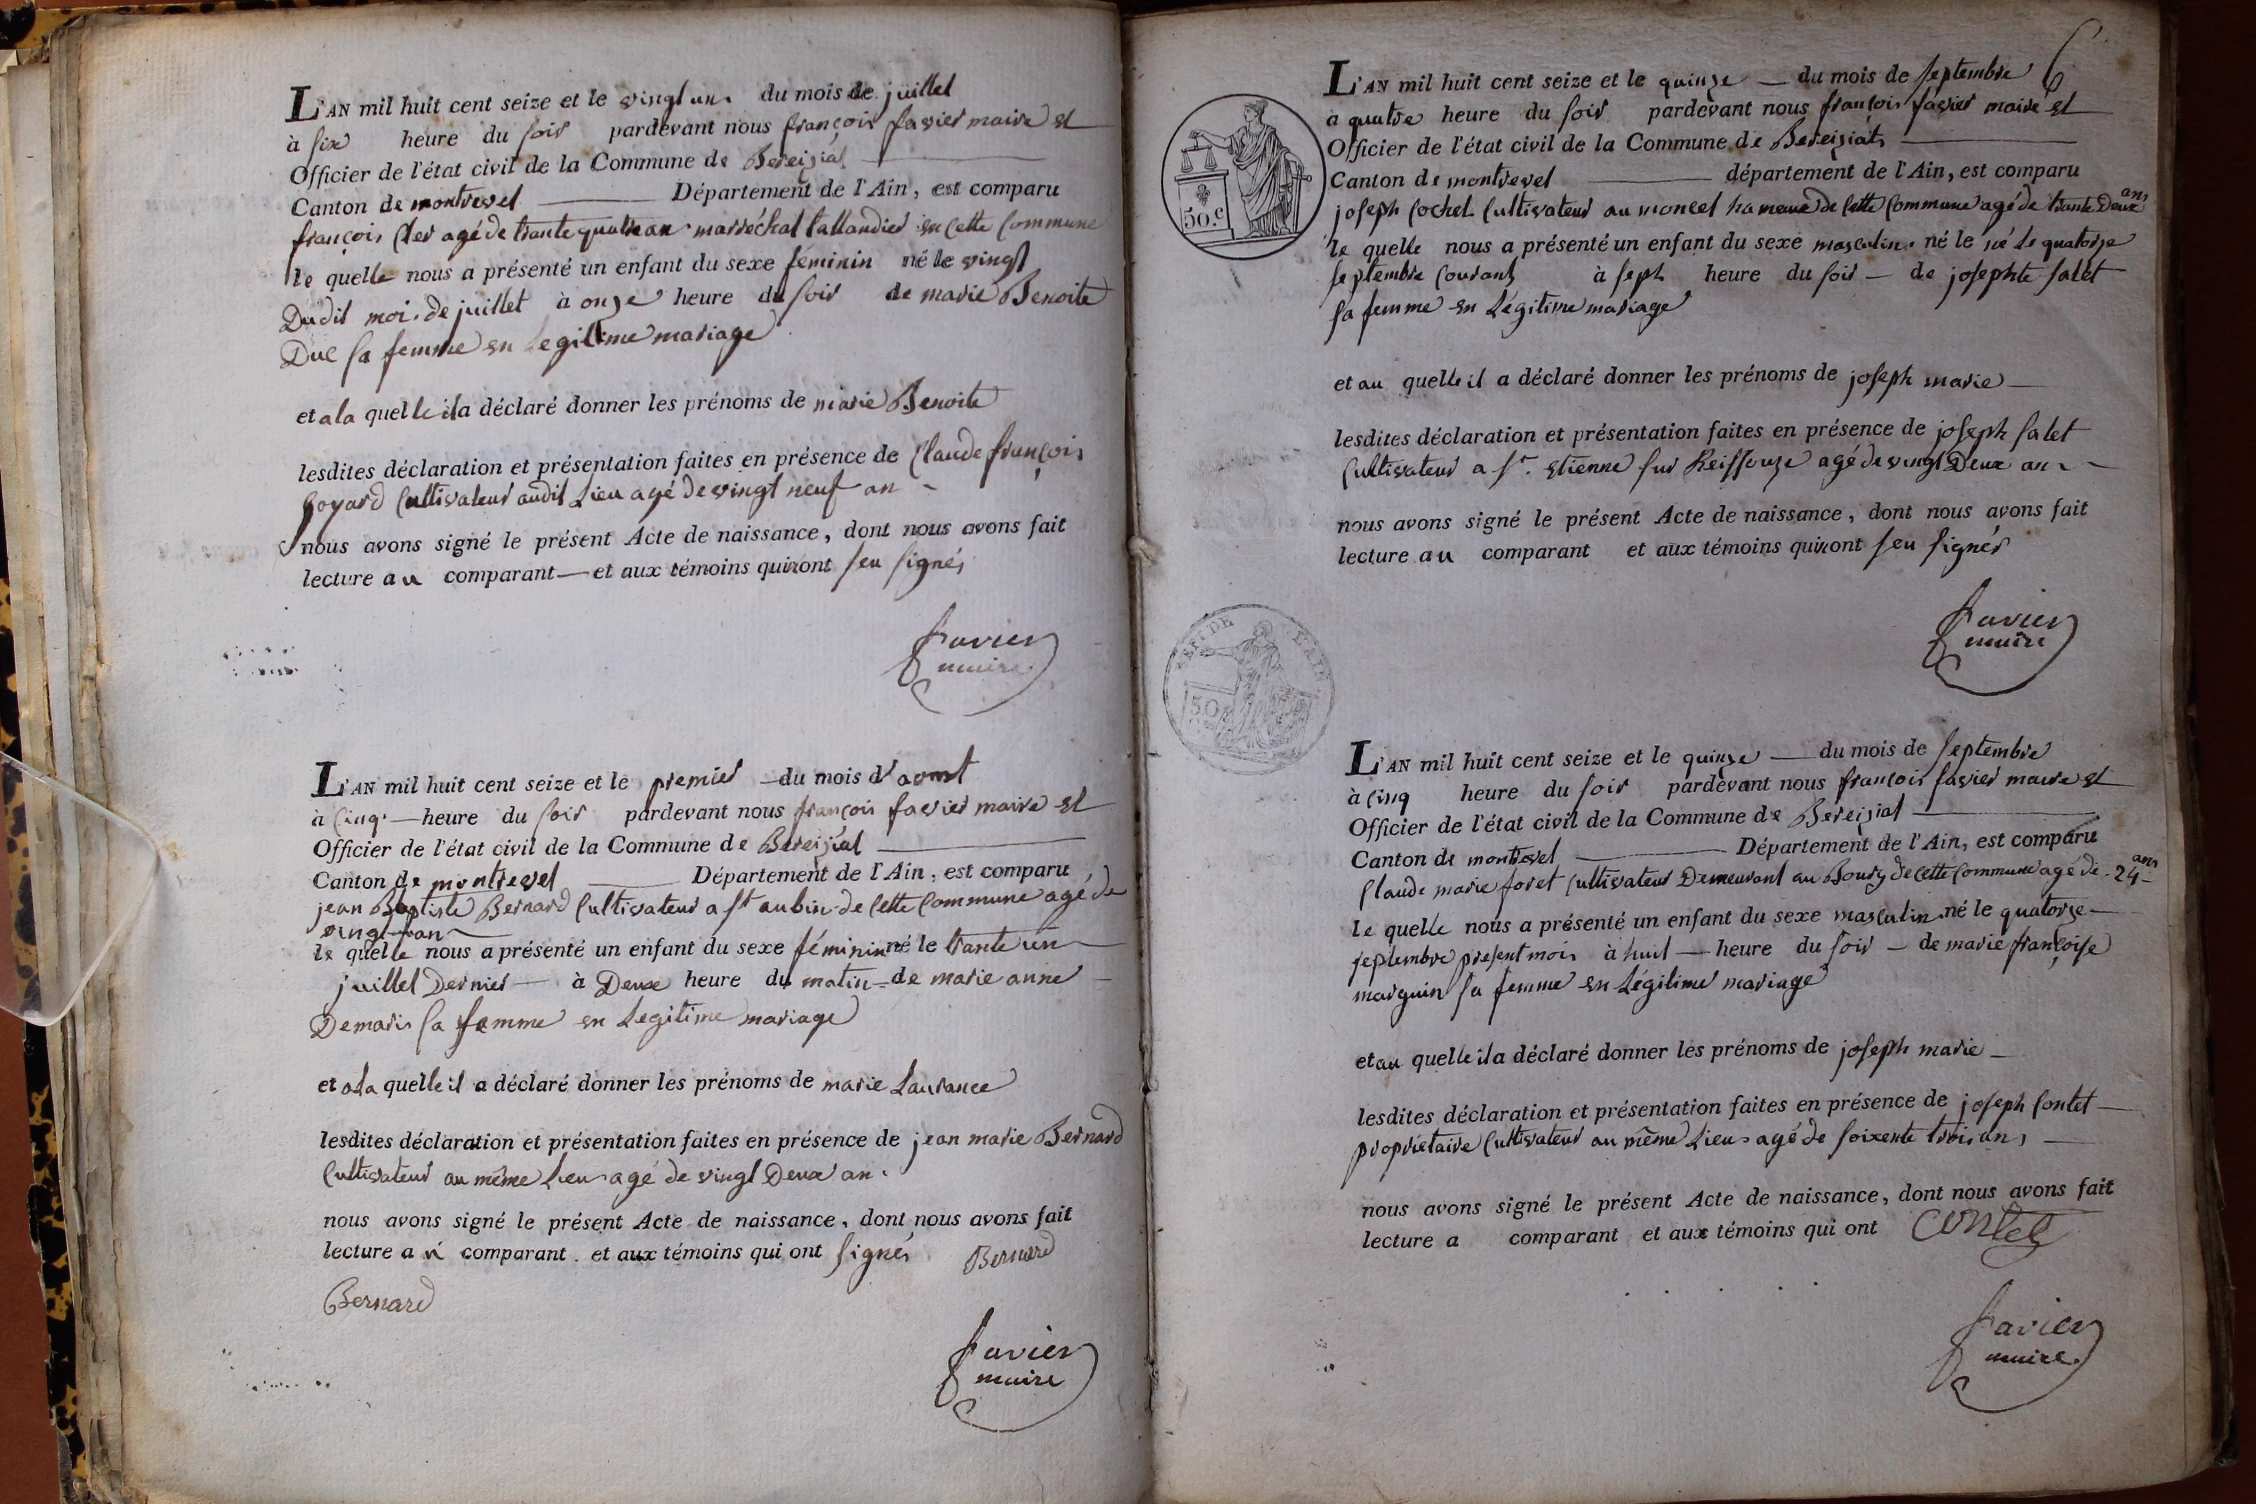 L'AN mil huit cent seize et le vingt un. du mois de juillet
à six heure du soir pardevant nous françois favier maire et
Officier de l'état civil de la Commune de Bereiziat
Canton de montrevel Département de l'Ain, est comparu
françois Cler agé de trante quatre an marréchal tallandier en cette Commune
le quelle nous a présenté un enfant du sexe féminin né le vingt
Dudit moi. de juillet à onze heure du soir de marie Benoite
Duc sa femme en Legitime mariage
et a la quelle il a déclaré donner les prénoms de marie Benoite
lesdites déclaration et présentation faites en présence de Claude françois
goyard Cultivateur audit Lieu agé de vingt neuf an
nous avons signé le présent Acte de naissance, dont nous avons fait
lecture au comparant et aux témoins qui n'ont seu signés
favier
maire
L'AN mil huit cent seize et le premier du mois d'aoust
à Cinq. heure du soir pardevant nous françois favier maire et
Officier de l'état civil de la Commune de Bereiziat
Canton de montrevel Département de l'Ain, est comparu
jean Baptiste Bernard Cultivateur a St aubin de Cette Commune agé de
vingt an
le quelle nous a présenté un enfant du sexe féminin né le trante un
juillet Dernier à Deux heure du matin de marie anne
Demaris sa femme en Legitime mariage
et a La quelle il a déclaré donner les prénoms de marie Laurance
lesdites déclaration et présentation faites en présence de jean marie Bernard
Cultivateur au même Lieu agé de vingt Deux an.
nous avons signé le présent Acte de naissance, dont nous avons fait
lecture au comparant et aux témoins qui ont signés Bernard
Bernard
favier
maire
6
L'AN mil huit cent seize et le quinze du mois de septembre
à quatre heure du soir pardevant nous françois favier maire et
Officier de l'état civil de la Commune de Bereiziat
Canton de montrevel département de l'Ain, est comparu
joseph Cochet Cultivateur au moncel hameau de Cette Commune agé de trante Deux ans
le quelle nous a présenté un enfant du sexe masculin. né le né le quatorze
septembre Courant à seph heure du soir de josephte salet
sa femme en Légitime mariage
et au quelle il a déclaré donner les prénoms de joseph marie
lesdites déclaration et présentation faites en présence de joseph salet
Cultivateur a St. etienne sur Reissouze agé de vingt Deux an
nous avons signé le présent Acte de naissance, dont nous avons fait
lecture au comparant et aux témoins qui n'ont seu signés
favier
maire
50.c
L'AN mil huit cent seize et le quinze du mois de septembre
à cinq heure du soir pardevant nous françois favier maire et
Officier de l'état civil de la Commune de Bereiziat
Canton de montrevel Département de l'Ain, est comparu
Claude marie foret Cultivateur Demeurant au Bourg de cette Commune agé de 24 ans
le quelle nous a présenté un enfant du sexe masculin né le quatorze
septembre present mois à huit heure du soir de marie françoise
marguin sa femme en Légitime mariage
et au quelle il a déclaré donner les prénoms de joseph marie
lesdites déclaration et présentation faites en présence de joseph Contet
propriétaire Cultivateur au même Lieu agé de soixente trois ans
nous avons signé le présent Acte de naissance, dont nous avons fait
lecture a comparant et aux témoins qui ont Contet
favier
maire.